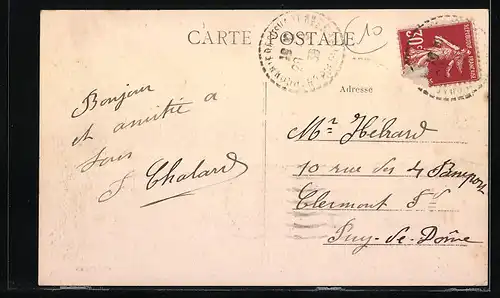 CARTE POSTALE
10
RÉPUBLIQUE FRANÇAISE
30c
Adresse
Bonjour
et amitié a
tous
S. Chalard
Mr Hébrard
10 rue des 4 Passeports
Clermont Fd
Puy-de-Dôme